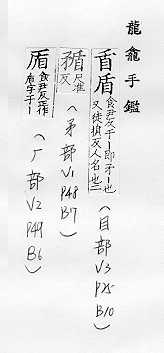 龍龕手鑑
盾盾食尹反干—即矛—也又徒損反人名也二
(目部 V3 P25 B10)
尺准反
(矛部 V1 P48 B7)
食尹反正作盾字干—
(厂部 V2 P49 B6)